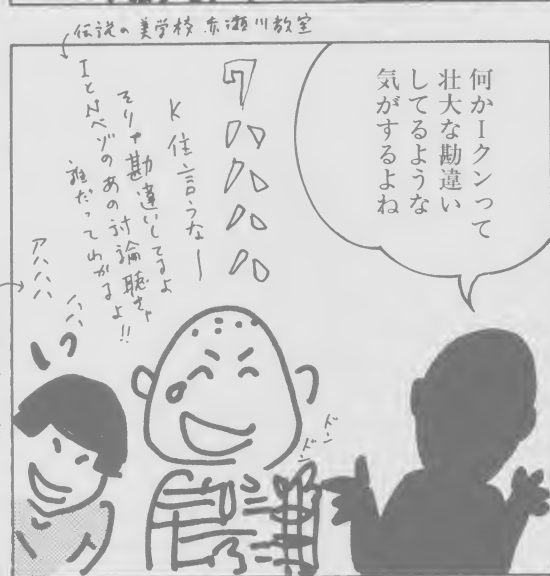 伝説の美学校 赤瀬川教室
何かIクンって
壮大な勘違い
してるような
気がするよね
ワハハハハ
K住言うなー
そりゃ勘違いしてるよ
IとNベゾのあの討論聴きゃ
誰だってわかるよ!!
アハハハ
ハハ
ドン
ドン